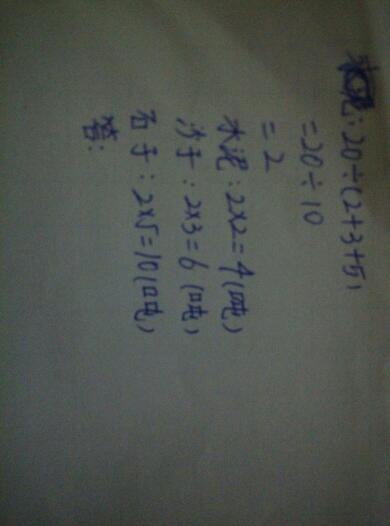 : 20÷(2+3+5)
=20÷10
=2
水泥: 2×2=4(吨)
沙子: 2×3=6(吨)
石子: 2×5=10(吨)
答: